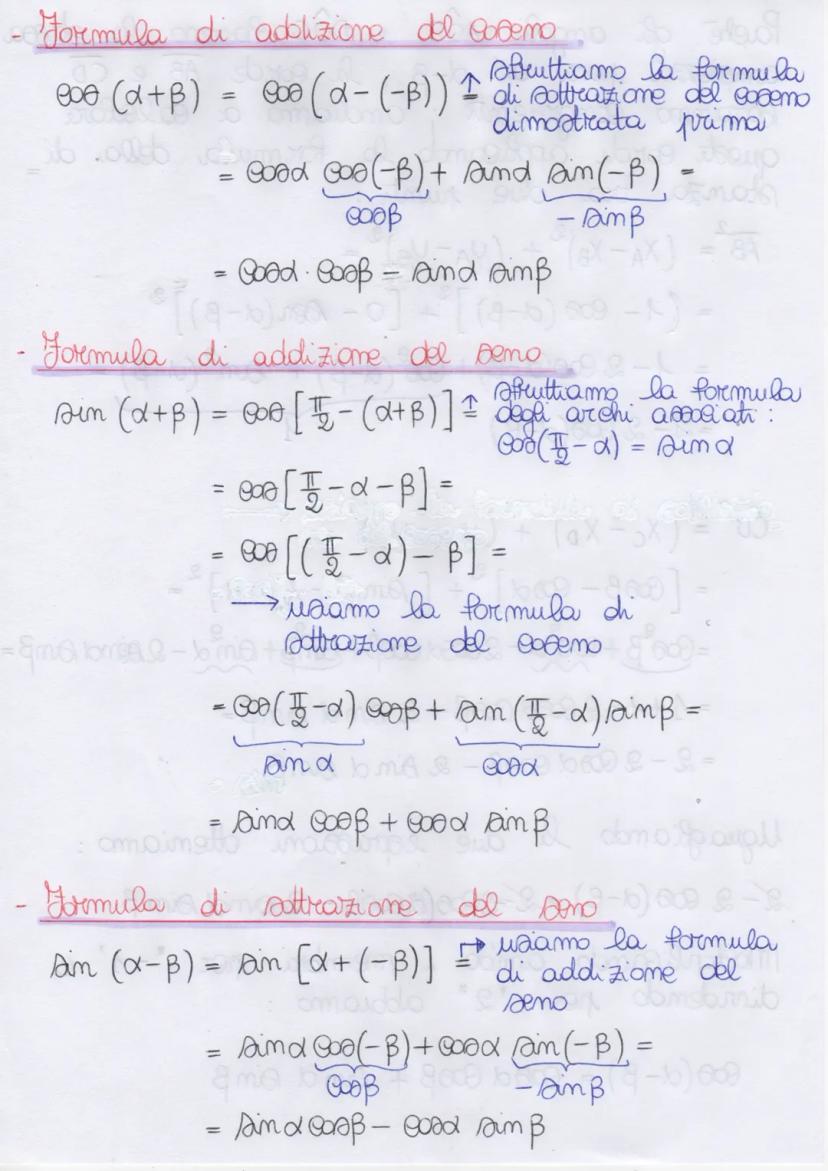 - Formula di addizione del coseno
cos (α+β) = cos (α-(-β)) = ↑ sfruttiamo la formula
di sottrazione del coseno
dimostrata prima
= cosα cos(-β) + sinα sin(-β) =
cosβ   - sinβ
= cosα · cosβ - sinα sinβ
- Formula di addizione del seno
sin (α+β) = cos [π/2 - (α+β)] = ↑ sfruttiamo la formula
degli archi associati:
cos(π/2 - α) = sin α
= cos [π/2 - α - β] =
= cos [(π/2 - α) - β] =
→ usiamo la formula di
sottrazione del coseno
= cos(π/2 - α) cosβ + sin (π/2 - α) sinβ =
sin α   cosα
= sinα cosβ + cosα sinβ
- Formula di sottrazione del seno
sin (α-β) = sin [α+(-β)] = ↱ usiamo la formula
di addizione del
seno
= sinα cos(-β) + cosα sin(-β) =
cosβ   - sinβ
= sinα cosβ - cosα sinβ